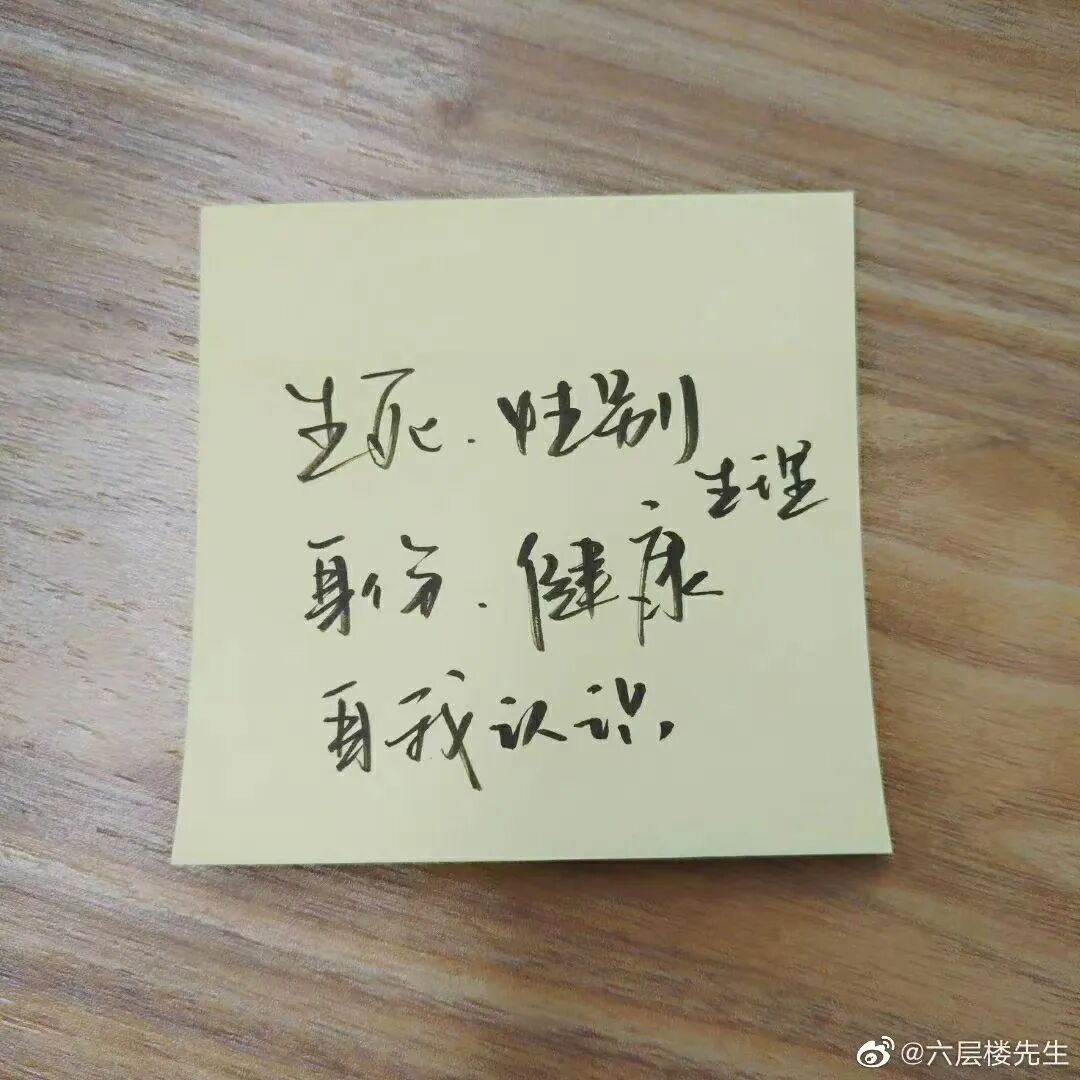 生死.性别
生理
身份.健康
自我认识.
@六层楼先生